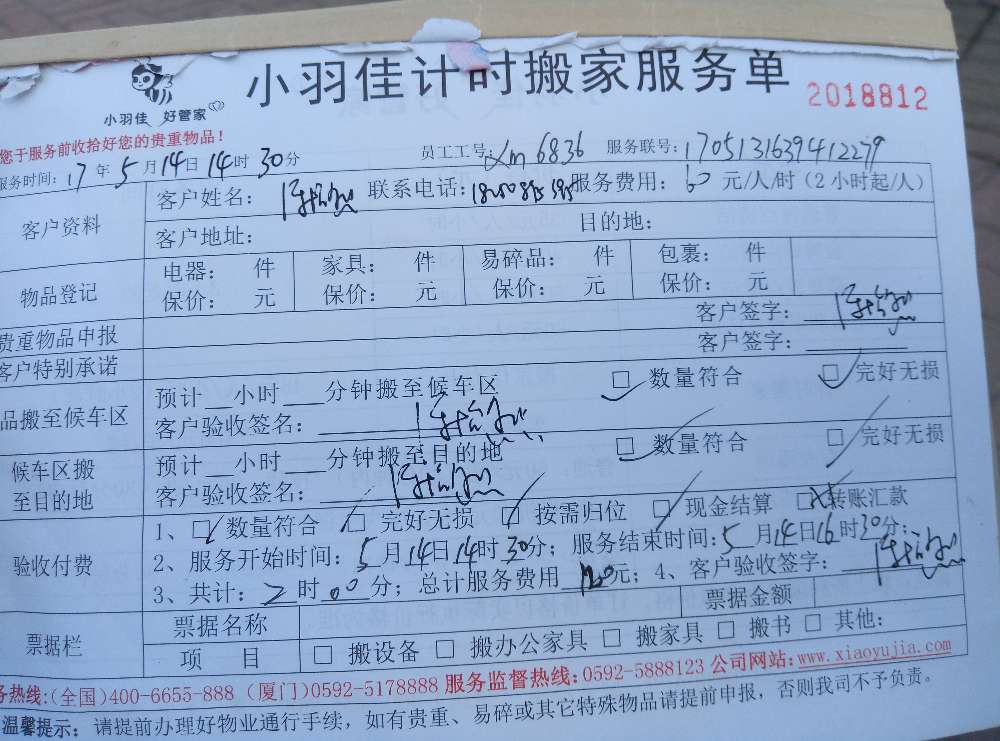 小羽佳 好管家
小羽佳计时搬家服务单
2018812
您于服务前收拾好您的贵重物品!
服务时间: 17 年 5 月 14 日 14 时 30 分 员工工号: xm 6836 服务联号: 1705131639412279
客户资料 客户姓名: 联系电话: 服务费用: 60 元/人/时 (2 小时起/人)
客户地址: 目的地:
物品登记 电器: 件 家具: 件 易碎品: 件 包裹: 件
保价: 元 保价: 元 保价: 元 保价: 元
贵重物品申报 客户签字:
客户特别承诺 客户签字:
品搬至候车区 预计 小时 分钟搬至候车区 数量符合 完好无损
客户验收签名:
候车区搬至目的地 预计 小时 分钟搬至目的地 数量符合 完好无损
客户验收签名:
验收付费 1、 数量符合 完好无损 按需归位 现金结算 转账汇款
2、服务开始时间: 5 月 14 日 14 时 30 分; 服务结束时间: 5 月 14 日 16 时 30 分;
3、共计: 2 时 00 分; 总计服务费用 元; 4、客户验收签字:
票据栏 票据名称 票据金额
项 目 □ 搬设备 □ 搬办公家具 □ 搬家具 □ 搬书 □ 其他:
务热线:(全国)400-6655-888 (厦门)0592-5178888 服务监督热线:0592-5888123 公司网站:www.xiaoyujia.com
温馨提示: 请提前办理好物业通行手续, 如有贵重、易碎或其它特殊物品请提前申报, 否则我司不予负责。